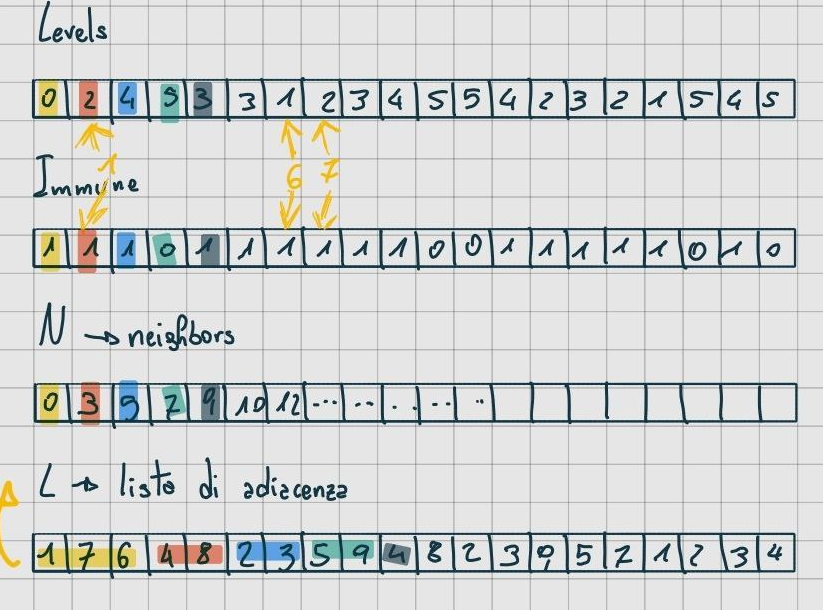 Levels
0 2 4 5 3 3 1 2 3 4 5 5 4 2 3 2 1 5 4 5
1 6 7
Immune
1 1 1 0 1 1 1 1 1 1 0 0 1 1 1 1 1 0 1 0
N → neighbors
0 3 5 7 9 10 12 ... .. .. .. ..
L → lista di adiacenza
1 7 6 4 8 2 3 5 9 4 8 2 3 5 7 1 2 3 4